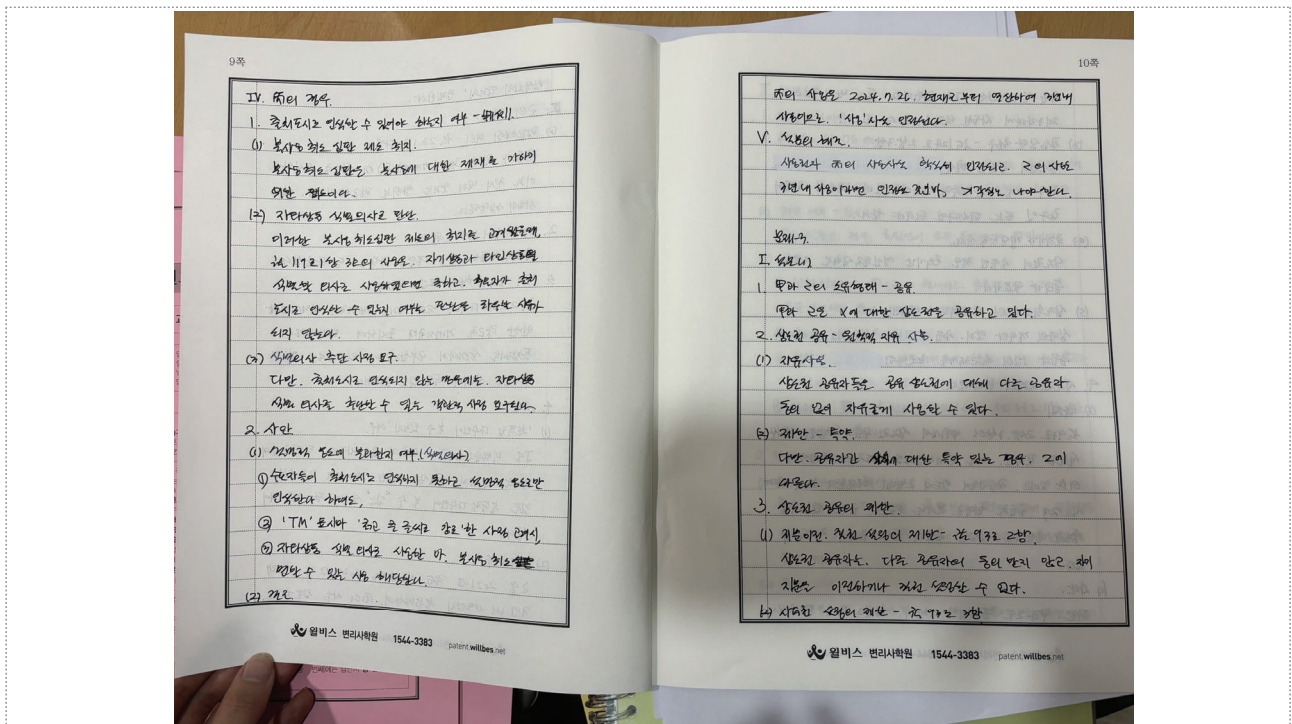 9쪽
IV. 丙의 경우.
1. 출처표시로 인식될 수 있어야 하는지 여부 -
(1) 불사용취소심판 제도 취지.
불사용취소심판은 불사용에 대한 제재를 가하기
위한 제도이다.
(2) 자타상품 식별의사로 판단.
이러한 불사용취소심판 제도의 취지를 고려할 때,
法 119조1항 3호의 사용은, 자기상품과 타인상품을
식별할 의사로 사용하였으면 족하고, 수요자가 출처
표시로 인식할 수 있는지 여부는 판단을 좌우할 사유가
되지 않는다.
(3) 식별의사 추단 사정 요구.
다만, 출처표시로 인식되지 않는 경우에는, 자타상품
식별 의사로 추단할 수 있는 객관적 사정 요구된다.
2. 사안
(1) 심미적 용도에 불과한지 여부(식별의사)
① 수요자들이 출처표시로 인식하지 못하고 심미적 용도로만
인식된다 하여도,
② 'TM' 표시와 '굵고 큰 글씨로 강조'한 사정 고려시,
③ 자타상품 식별 의사로 사용한 바, 불사용 취소
면할 수 있는 사용 해당한다.
(2) 결론.
윌비스 변리사학원 1544-3383 patent.willbes.net
10쪽
丙의 사용은 2024.7.26. 현재로부터 역산하여 3년내
사용이므로, '사용'사실 인정된다.
V. 설문의 해결.
상표권자 丙의 사용사실 인정되고, 그의 사용
3년내 사용이라면 인정될 것인바, 기각심결 나야 한다.
문제-3.
I. 설문(1)
1. 甲과 乙의 소유형태 - 공유
甲과 乙은 X에 대한 상표권을 공유하고 있다.
2. 상표권 공유 - 원칙적 자유 사용.
(1) 자유사용.
상표권 공유자들은 공유 상표권에 대해 다른 공유자
동의 없이 자유롭게 사용할 수 있다.
(2) 제한 - 특약.
다만, 공유자간 대한 특약 있는 경우, 그에
따른다.
3. 상표권 공유의 제한.
(1) 지분이전, 질권 설정의 제한 - 法 93조 2항.
상표권 공유자는, 다른 공유자의 동의 받지 않고, 자기
지분을 이전하거나 질권 설정할 수 없다.
(2) 사용권 설정의 제한 - 法 93조 3항
윌비스 변리사학원 1544-3383 patent.willbes.net